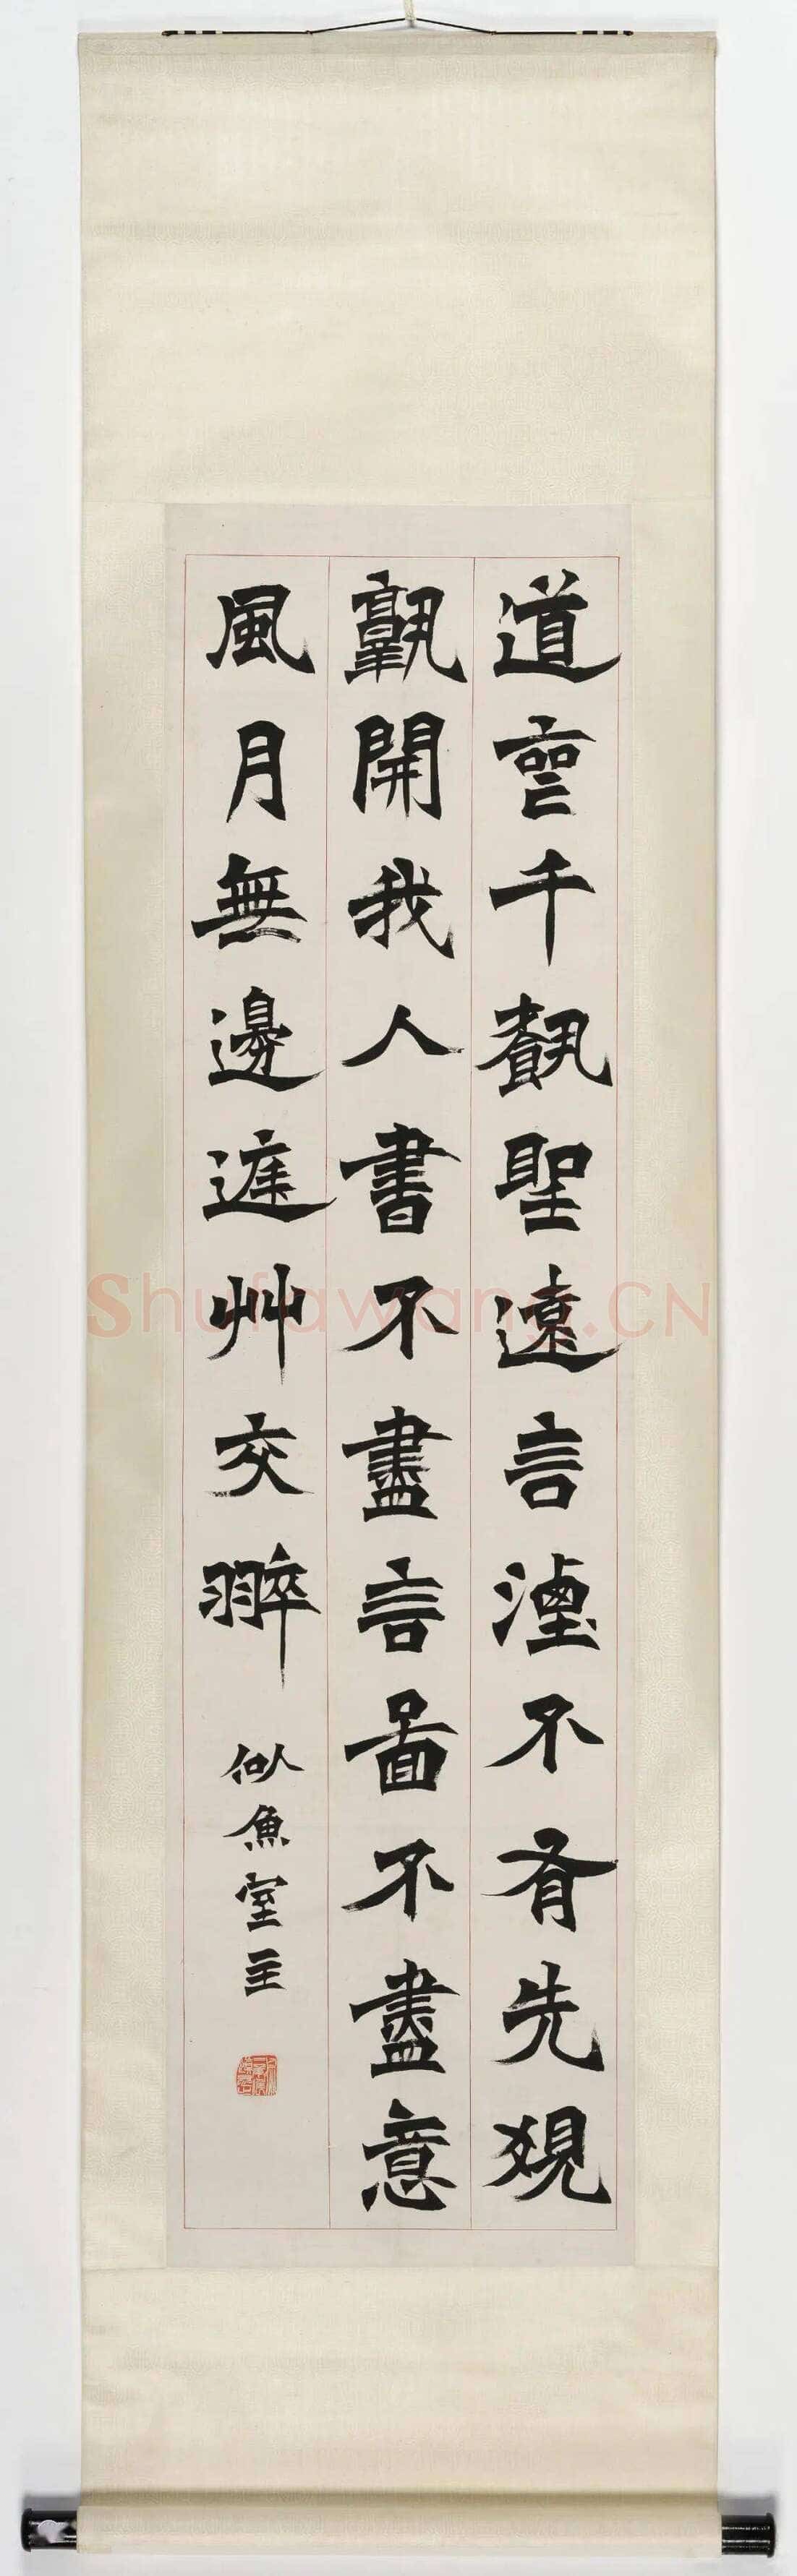 道喪千載聖遠言湮不有先覺
孰開我人書不盡言啚不盡意
風月無邊庭艸交翠
似魚室主
Shufawang.CN